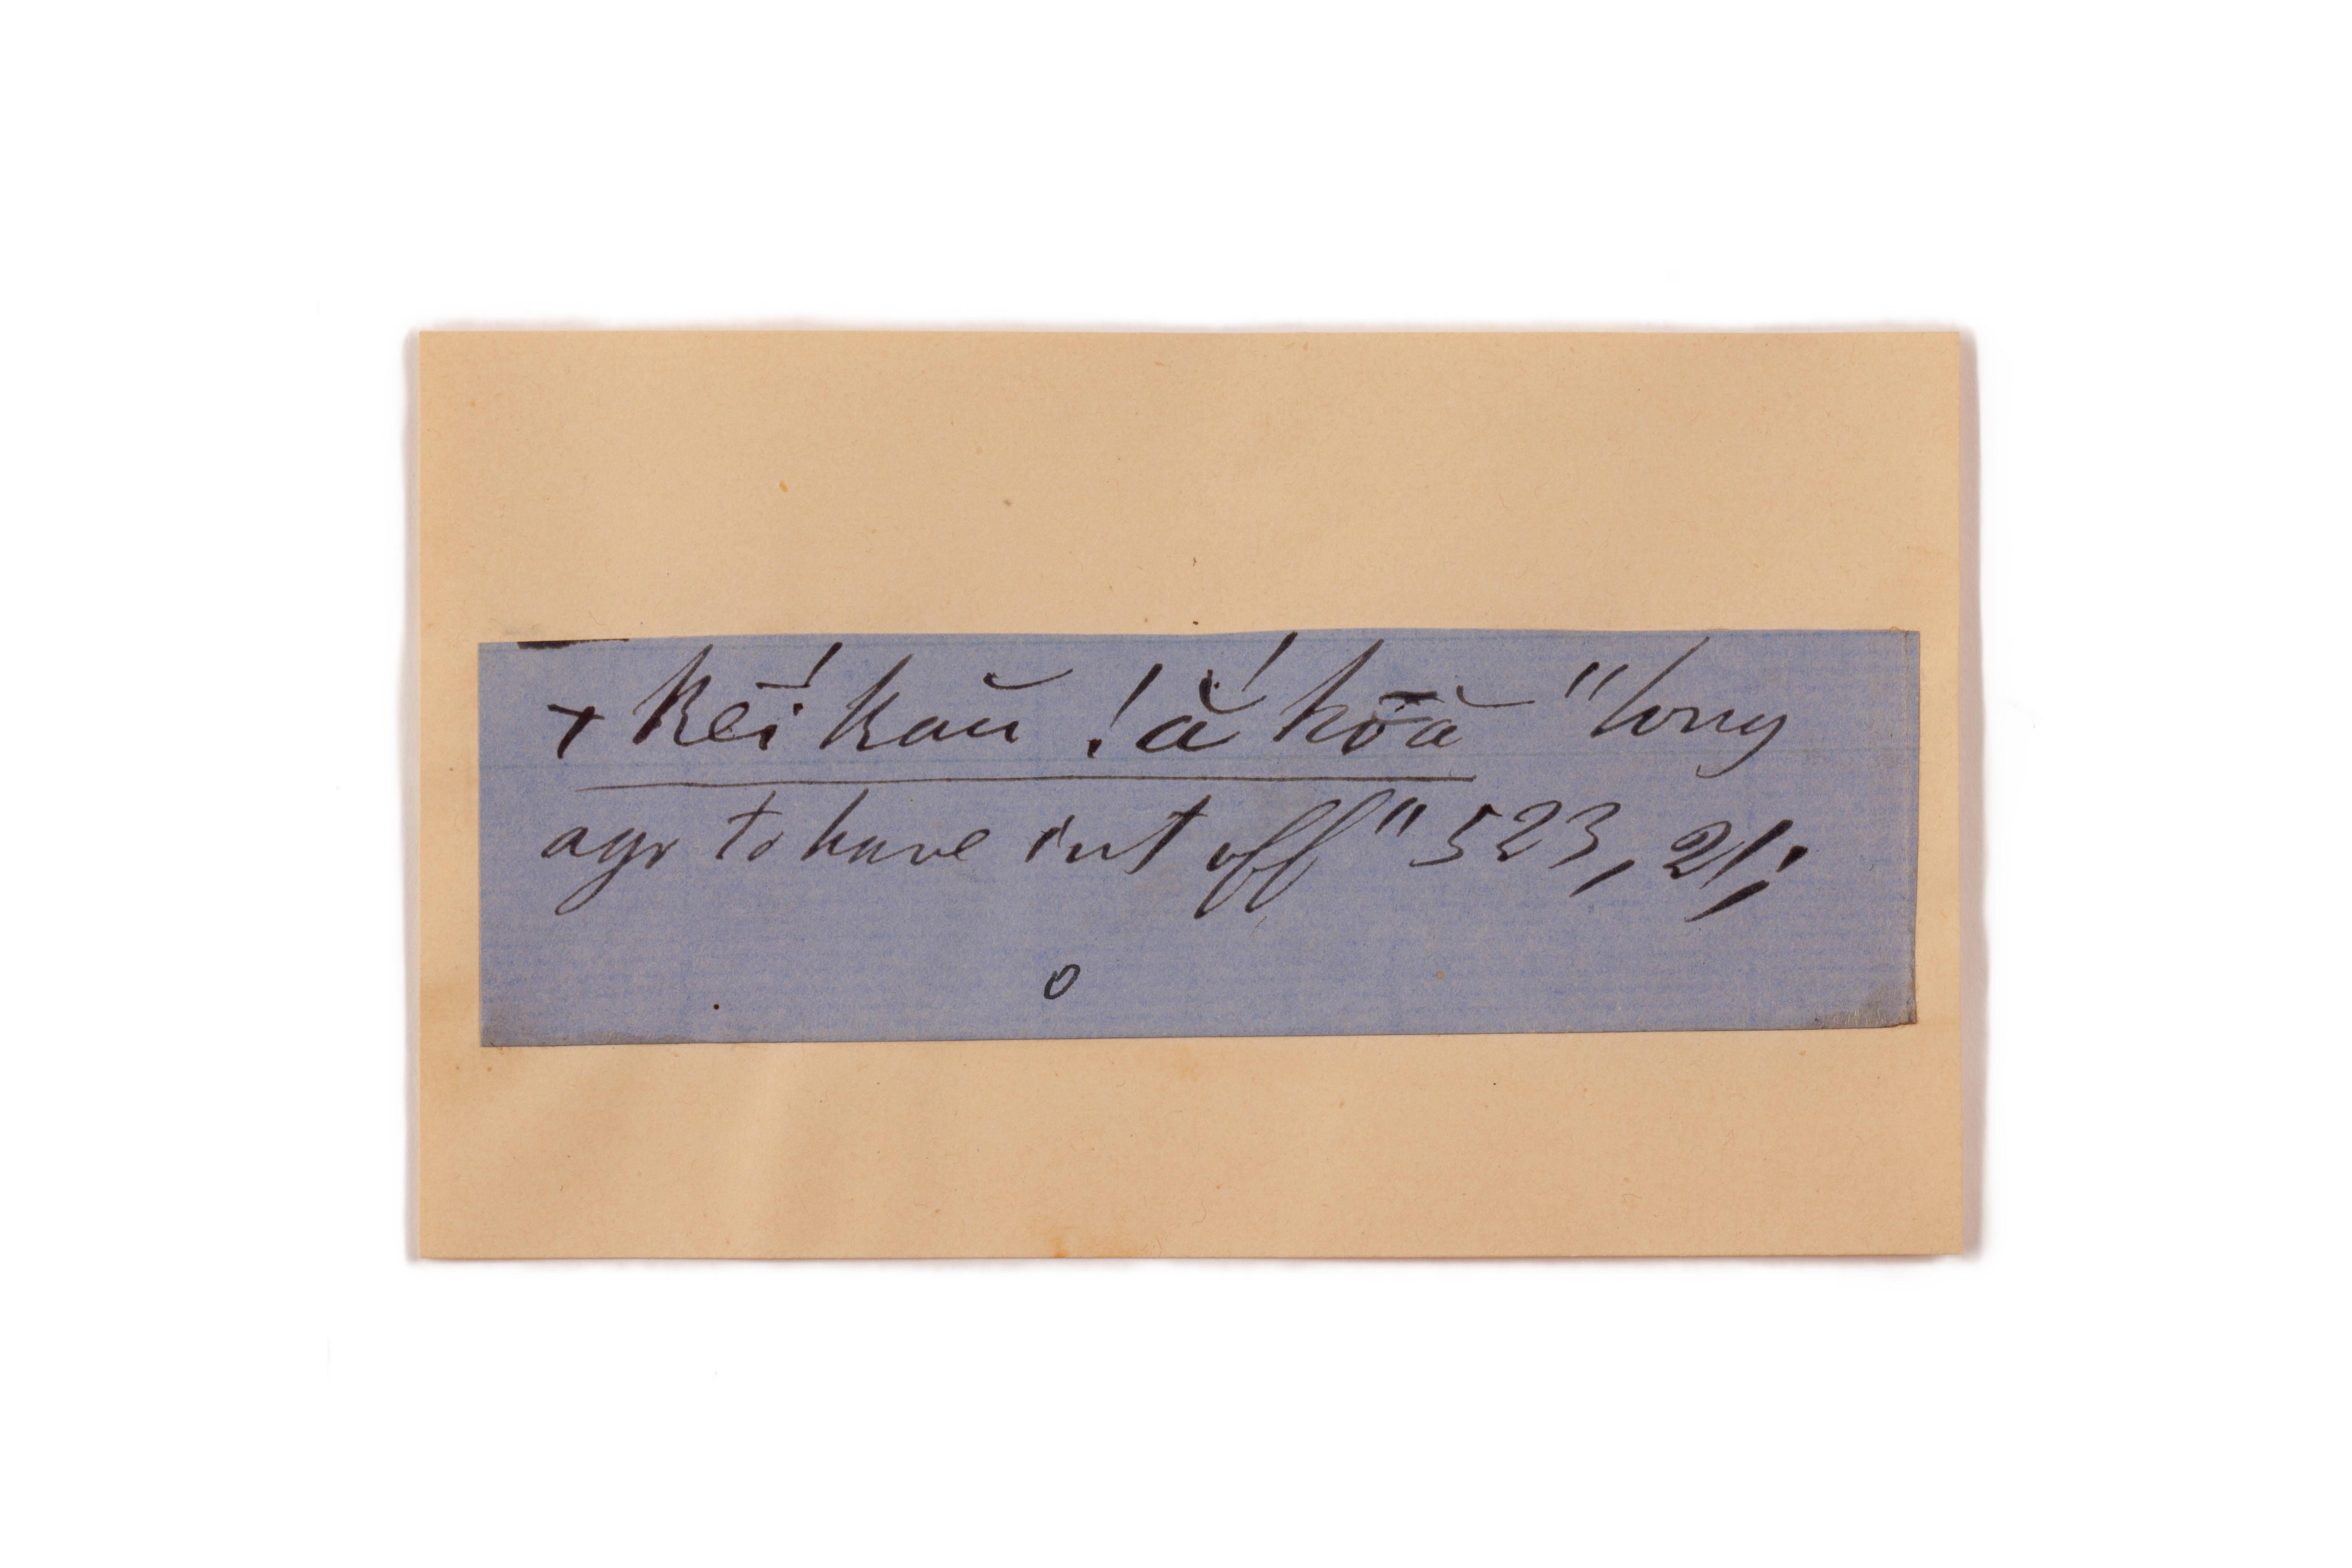 + kēi kaŭ !ắ hō̆ă "long
ago to have cut off" 523, 21;
o